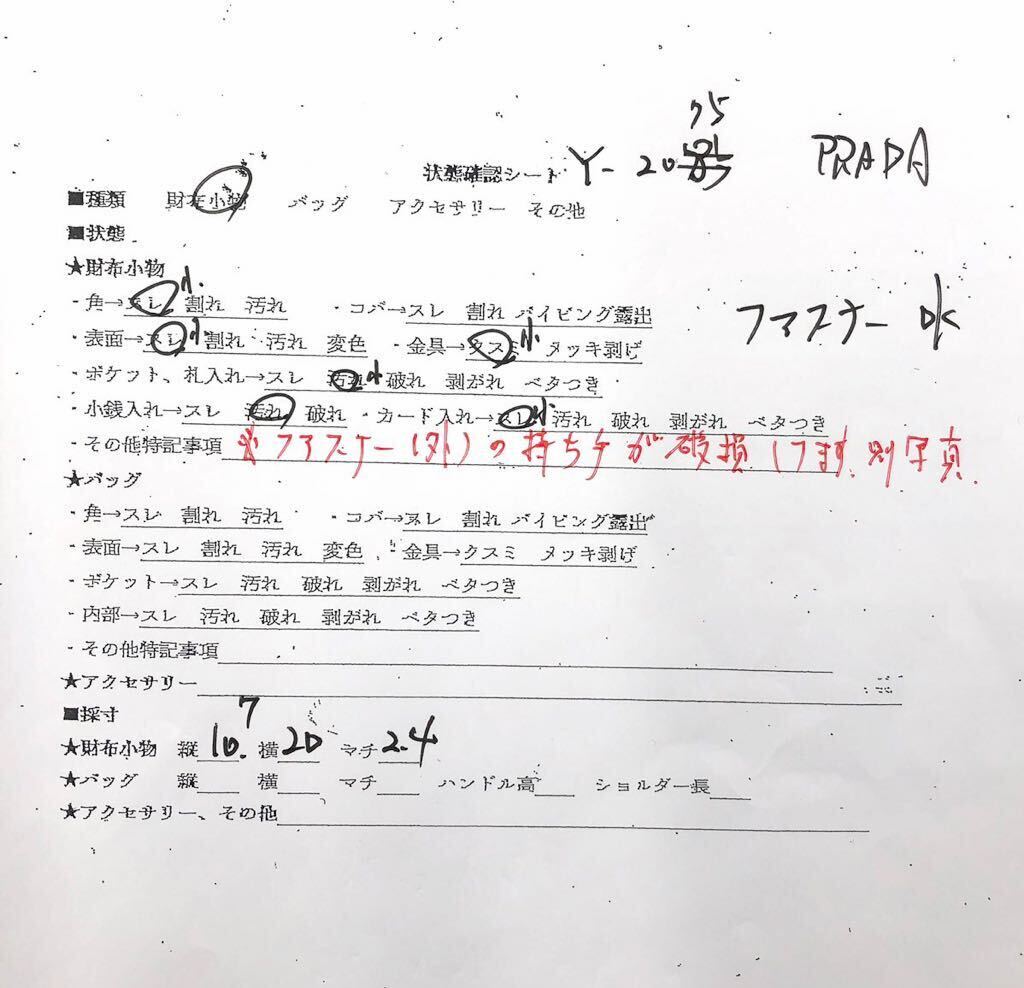 75
状態確認シート Y-20 PRADA
■種類 財布小物 バッグ アクセサリー その他
■状態
★財布小物
・角→スレ小 割れ 汚れ ・コバ→スレ 割れ パイピング露出
ファスナー
・表面→スレ小 割れ 汚れ 変色 ・金具→クスミ小 メッキ剥げ
・ポケット、札入れ→スレ 汚れ小 破れ 剥がれ ベタつき
・小銭入れ→スレ 汚れ 破れ ・カード入れ→スレ小 汚れ 破れ 剥がれ ベタつき
・その他特記事項 ※ファスナー(外)の持ち手が破損してます。別写真
★バッグ
・角→スレ 割れ 汚れ ・コバ→スレ 割れ パイピング露出
・表面→スレ 割れ 汚れ 変色 ・金具→クスミ メッキ剥げ
・ポケット→スレ 汚れ 破れ 剥がれ ベタつき
・内部→スレ 汚れ 破れ 剥がれ ベタつき
・その他特記事項
★アクセサリー
■採寸
★財布小物 縦 10.7 横 20 マチ 2.4
★バッグ 縦 横 マチ ハンドル高 ショルダー長
★アクセサリー、その他